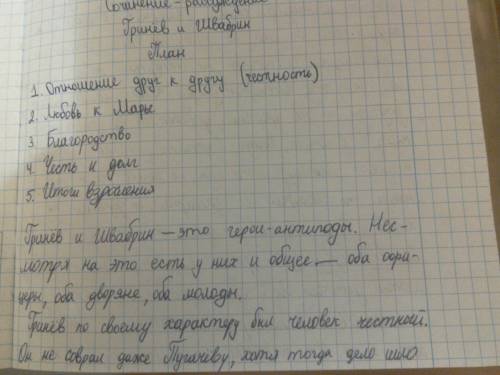 Сочинение-рассуждение
Гринёв и Швабрин
План
1. Отношение друг к другу (честность)
2. Любовь к Маше
3. Благородство
4. Честь и долг
5. Итоги взросления
Гринёв и Швабрин — это герои-антиподы. Нес-
мотря на это есть у них и общее — оба офи-
церы, оба дворяне, оба молоды.
Гринёв по своему характеру был человек честный.
Он не соврал даже Пугачеву, хотя тогда дело шло